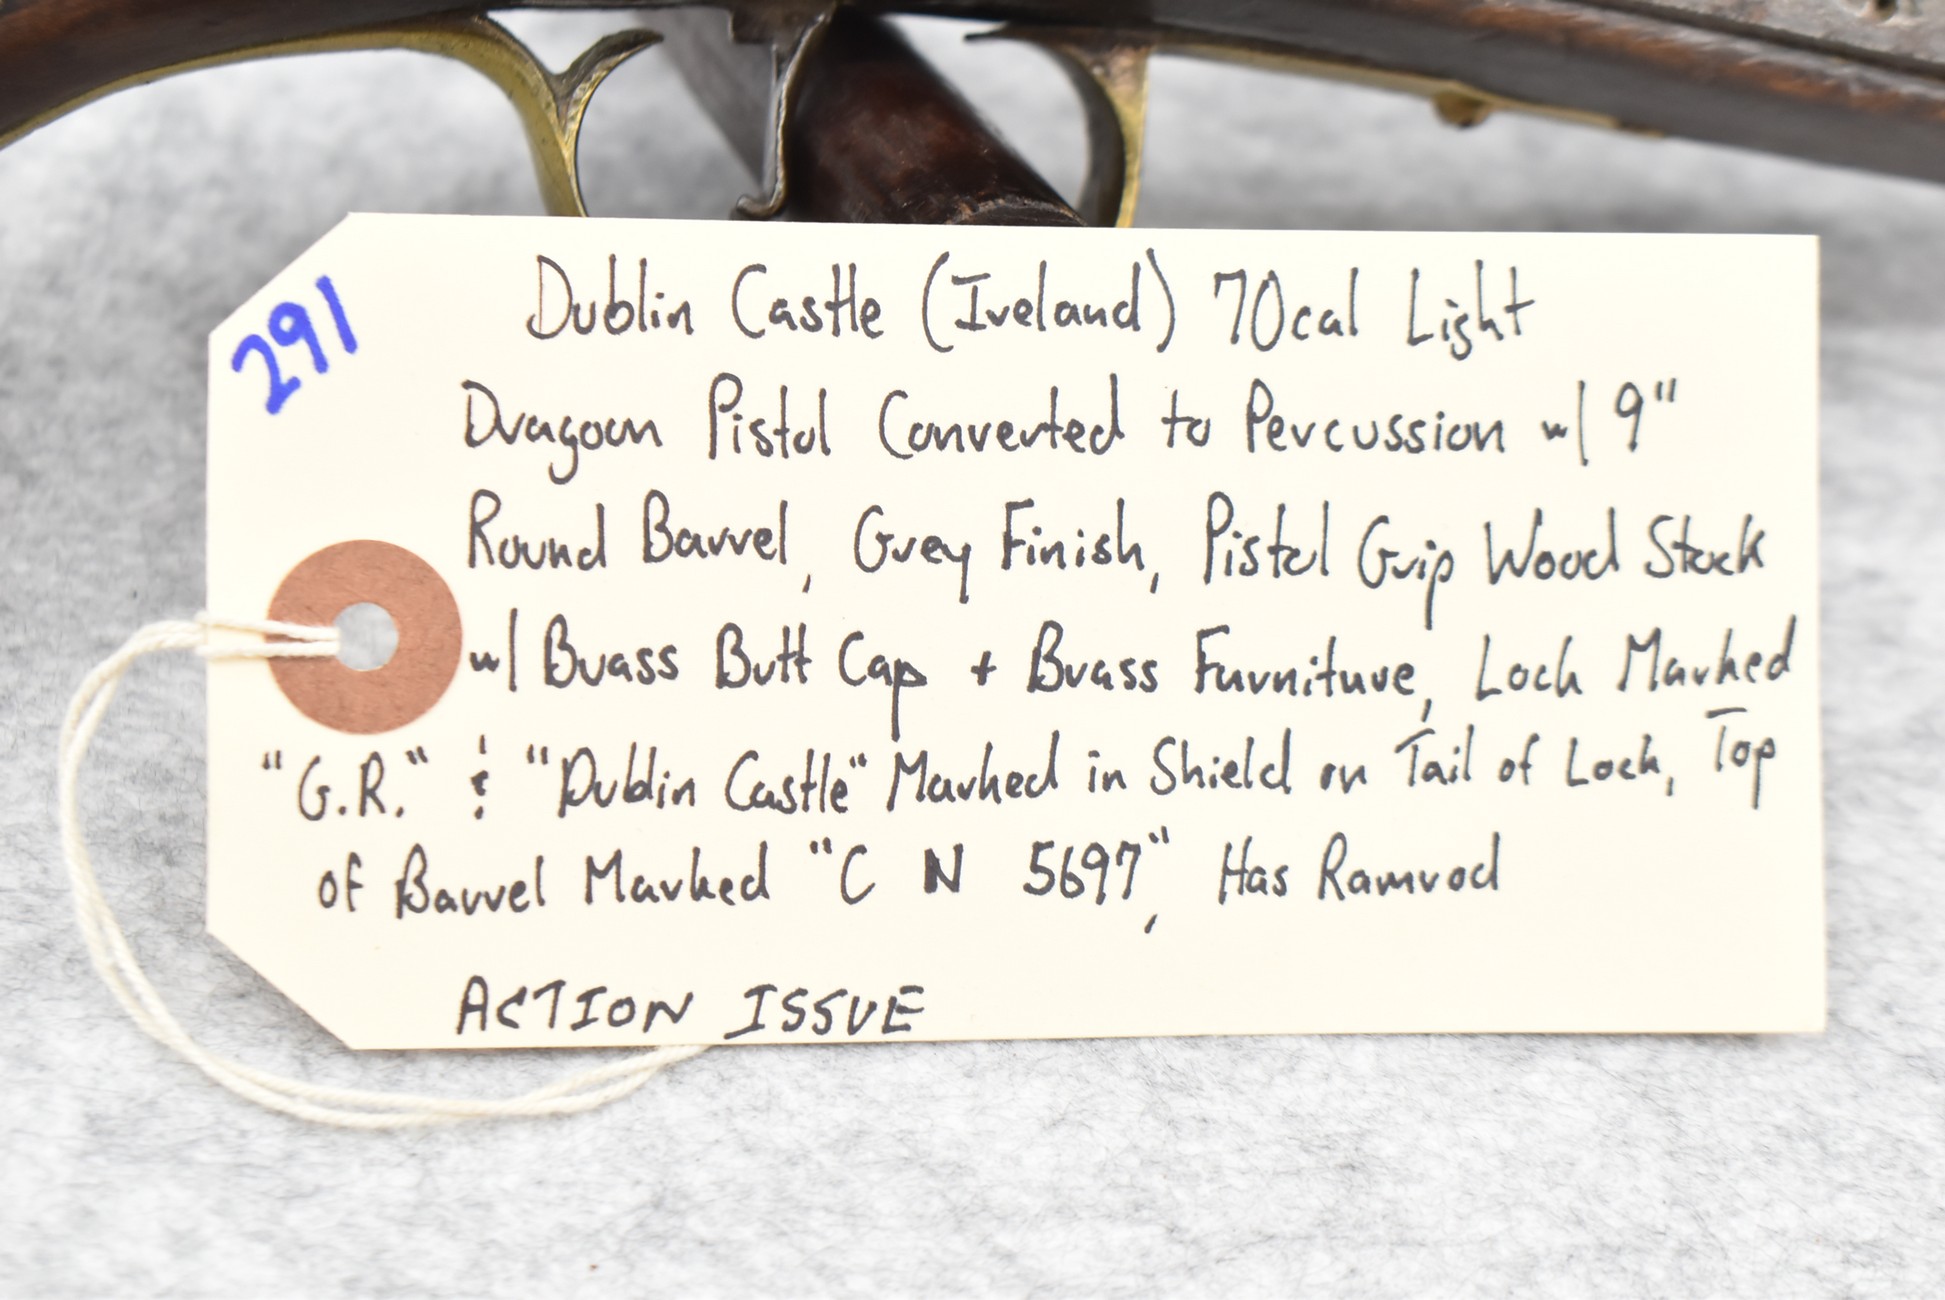 291
Dublin Castle (Ireland) 70cal Light
Dragoon Pistol Converted to Percussion w/ 9"
Round Barrel, Grey Finish, Pistol Grip Wood Stock
w/ Brass Butt Cap + Brass Furniture, Lock Marked
"G.R." & "Dublin Castle" Marked in Shield on Tail of Lock, Top
of Barrel Marked "C N 5697", Has Ramrod
ACTION ISSUE